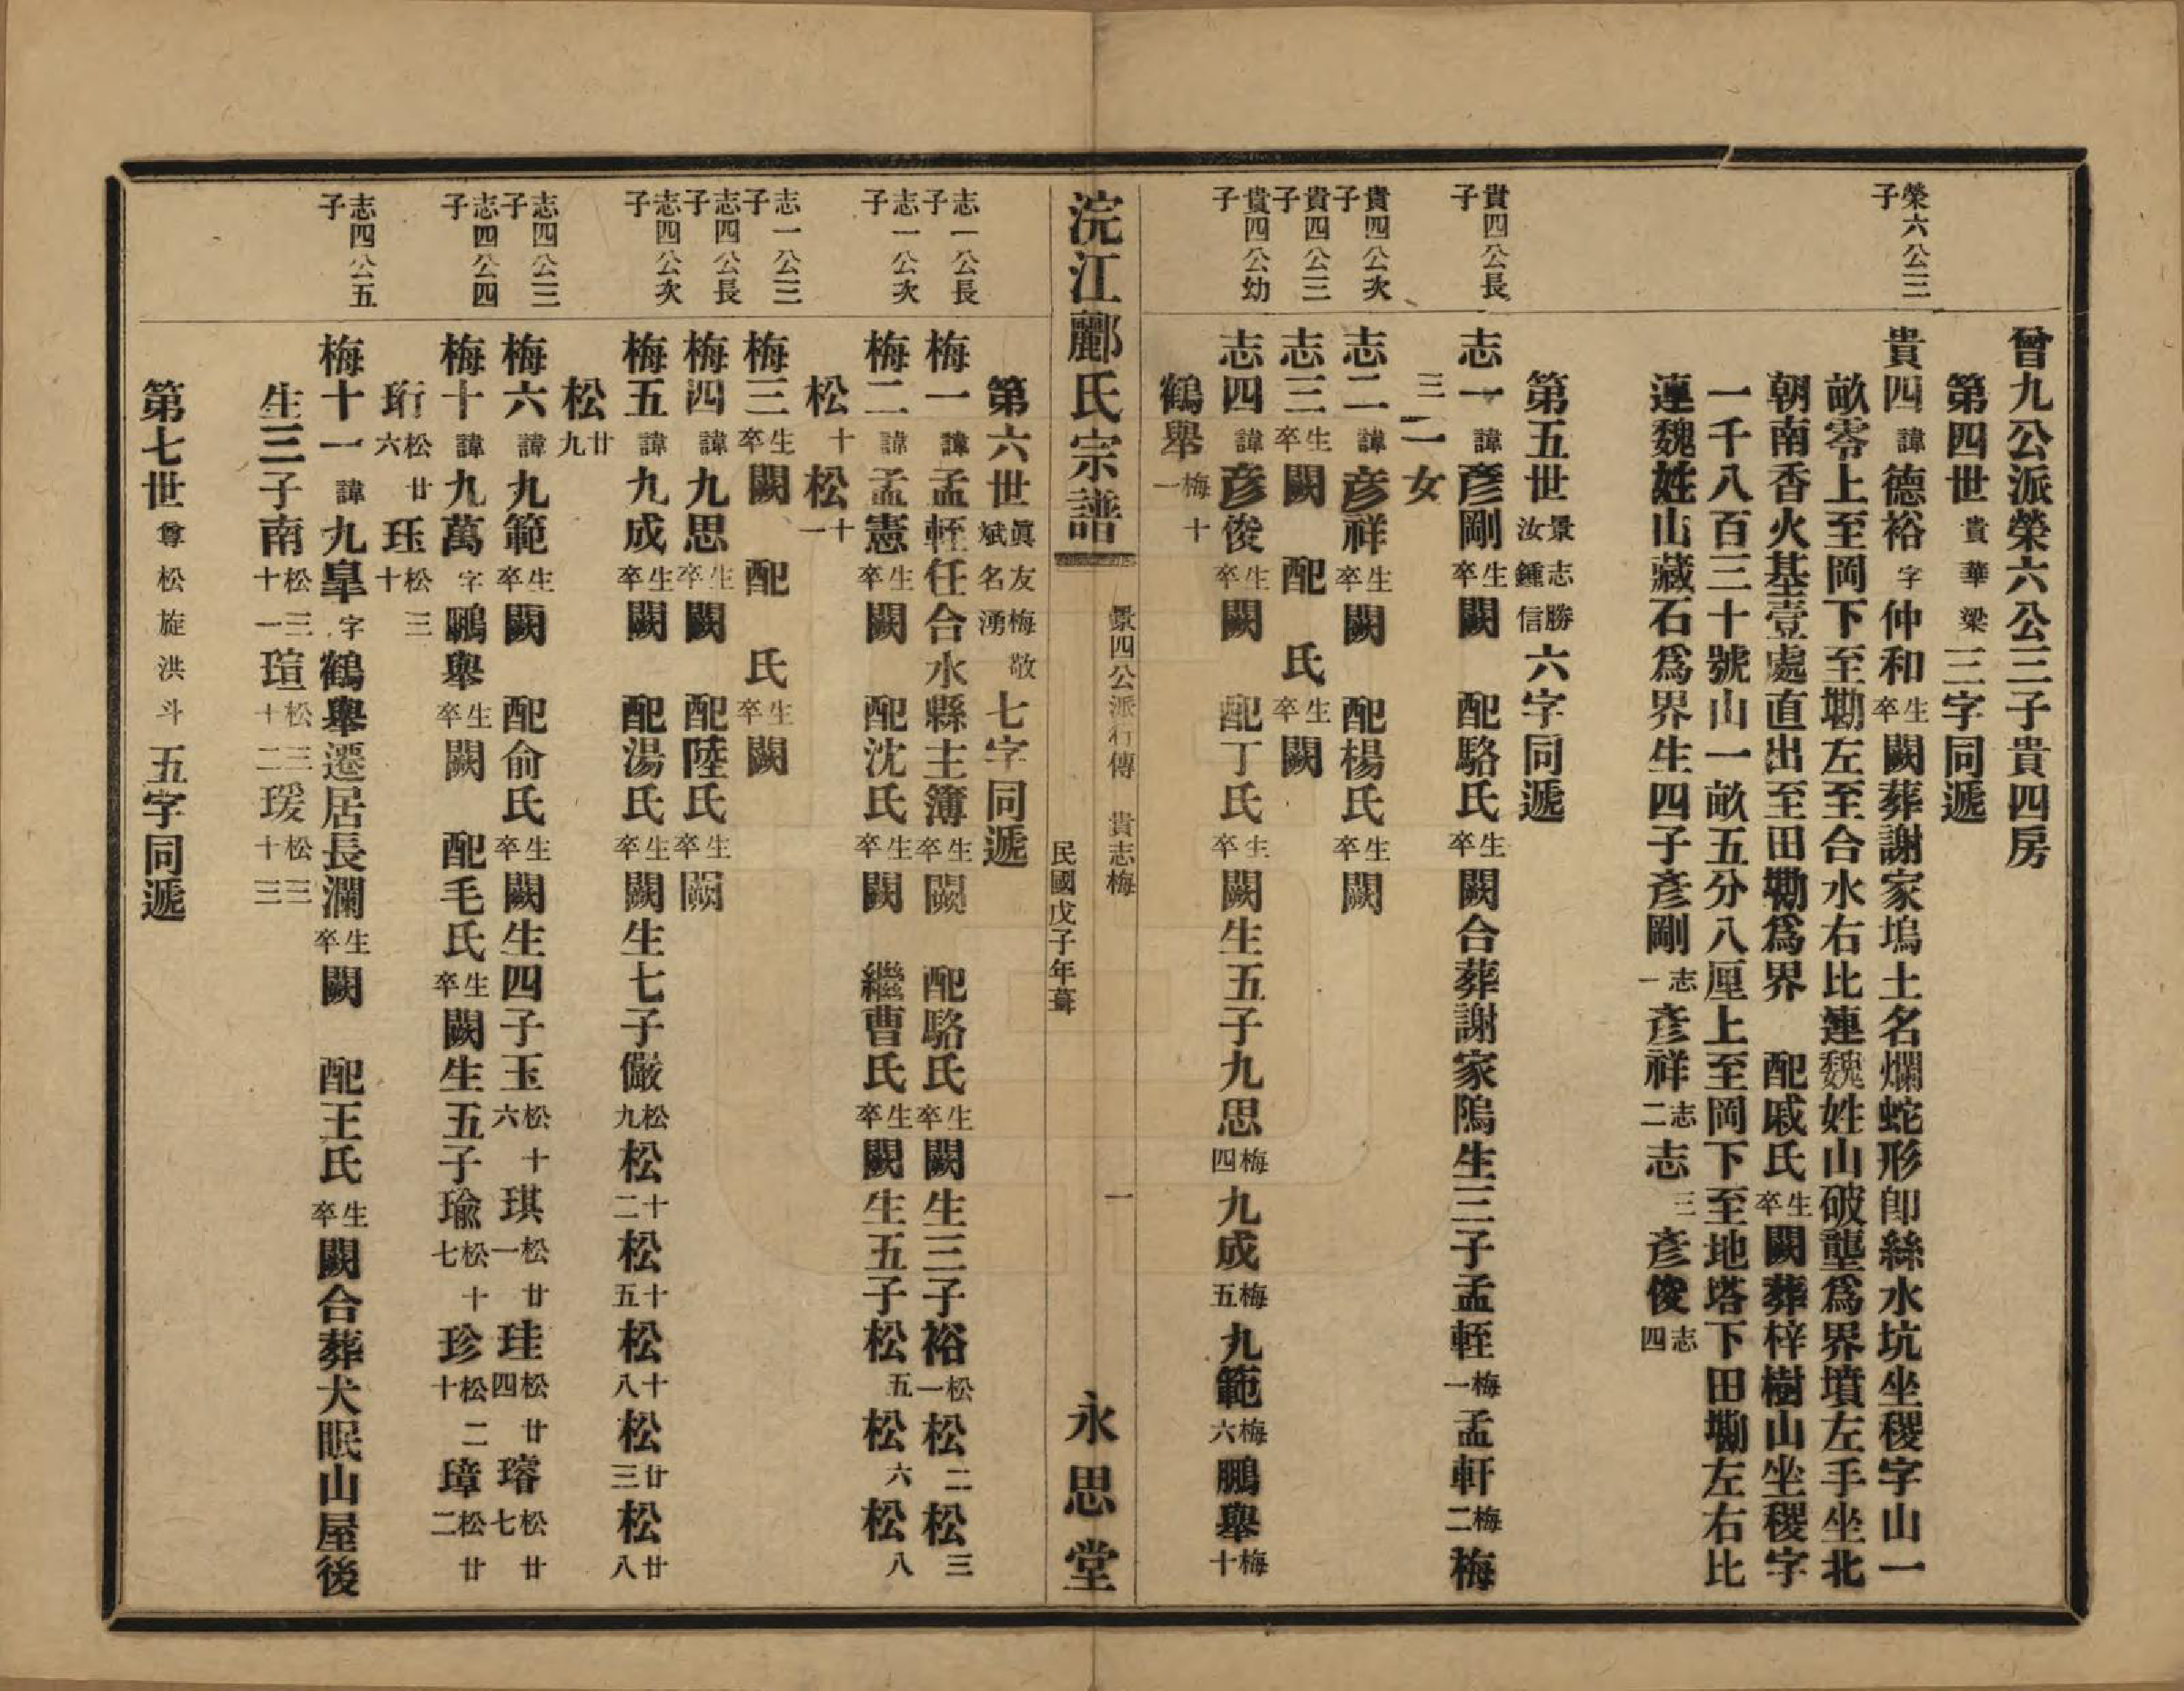 曾九公派榮六公三子貴四房
第四世貴華梁三字同遞
榮六公三子
貴四諱德裕字仲和生卒闕葬謝家塢土名爛蛇形卽絲水坑坐稷字山一
畝零上至岡下至墈左至合水右比連魏姓山破壟爲界墳左手坐北
朝南香火基壹處直出至田墈爲界 配戚氏生卒闕葬梓樹山坐稷字
一千八百三十號山一畝五分八厘上至岡下至地塔下田墈左右比
連魏姓山藏石爲界生四子彥剛志一彥祥志二志三彥俊志四
第五世景志勝汝鍾信六字同遞
貴四公長子
志一諱彥剛生卒闕 配駱氏生卒闕合葬謝家隖生三子孟輊梅一孟軒梅二梅
三二女
貴四公次子
志二諱彥祥生卒闕 配楊氏生卒闕
貴四公三子
志三生卒闕 配 氏生卒闕
貴四公幼子
志四諱彥俊生卒闕 配丁氏生卒闕生五子九思梅四九成梅五九範梅六鵬舉梅十
鶴舉梅十一
浣江酈氏宗譜
景四公派行傳 貴志梅 一
民國戊子年葺
永思堂
第六世眞友梅敬斌名湧七字同遞
志一公長子
梅一諱孟輊任合水縣主簿生卒闕 配駱氏生卒闕生三子裕松一松二松三
志一公次子
梅二諱孟憲生卒闕 配沈氏生卒闕 繼曹氏生卒闕生五子松五松六松八
松十松十一
志一公三子
梅三生卒闕 配 氏生卒闕
志四公長子
梅四諱九思生卒闕 配陸氏生卒闕
志四公次子
梅五諱九成生卒闕 配湯氏生卒闕生七子儼松九松十二松十五松十八松廿三松廿八
松廿九
志四公三子
梅六諱九範生卒闕 配俞氏生卒闕生四子玉松十六琪松廿一珪松廿四璿松廿七
志四公四子
梅十諱九萬字鵬舉生卒闕 配毛氏生卒闕生五子瑜松十七珍松二十璋松廿二
珩松廿六珏松三十
志四公五子
梅十一諱九皐字鶴舉遷居長瀾生卒闕 配王氏生卒闕合葬犬眠山屋後
生三子南松三十一瑄松三十二瑗松三十三
第七世尊松旋洪斗五字同遞